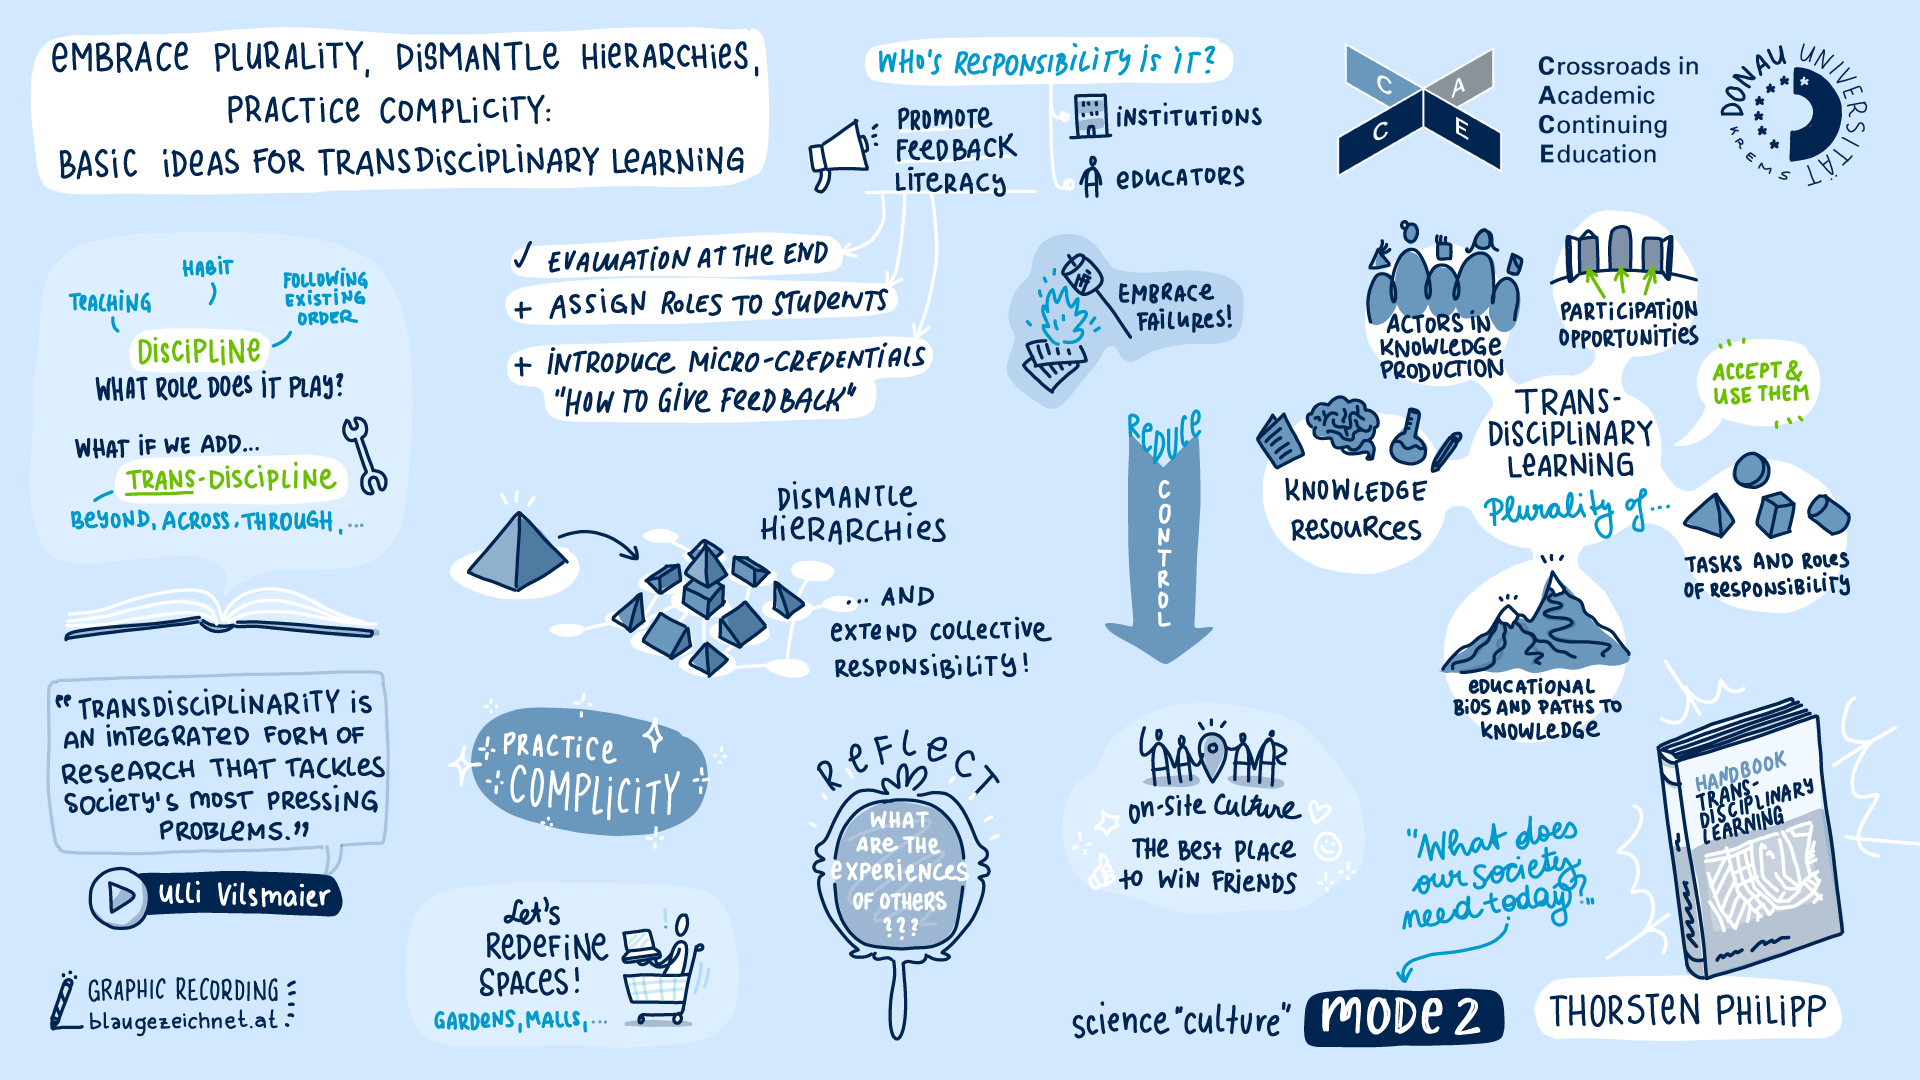 EMBRACE PLURALITY, DISMANTLE HIERARCHIES,
PRACTICE COMPLICITY:
BASIC IDEAS FOR TRANSDISCIPLINARY LEARNING
WHO'S RESPONSIBILITY IS IT?
INSTITUTIONS
EDUCATORS
PROMOTE
FEEDBACK
LITERACY
✓ EVALUATION AT THE END
+ ASSIGN ROLES TO STUDENTS
+ INTRODUCE MICRO-CREDENTIALS
"HOW TO GIVE FEEDBACK"
C A C E
Crossroads in
Academic
Continuing
Education
DONAU UNIVERSITÄT
KREMS
TEACHING
HABIT
FOLLOWING
EXISTING
ORDER
DISCIPLINE
WHAT ROLE DOES IT PLAY?
WHAT IF WE ADD...
TRANS-DISCIPLINE
BEYOND, ACROSS, THROUGH, ...
"TRANSDISCIPLINARITY IS
AN INTEGRATED FORM OF
RESEARCH THAT TACKLES
SOCIETY'S MOST PRESSING
PROBLEMS."
ULLI VILSMAIER
GRAPHIC RECORDING
blaugezeichnet.at
DISMANTLE
HIERARCHIES
... AND
EXTEND COLLECTIVE
RESPONSIBILITY!
PRACTICE
COMPLICITY
Let's
REDEFINE
SPACES!
GARDENS, MALLS, ...
REFLECT
WHAT
ARE THE
EXPERIENCES
OF OTHERS
???
EMBRACE
FAILURES!
REDUCE
CONTROL
on-site Culture
THE BEST PLACE
to WIN FRIENDS
ACTORS IN
KNOWLEDGE
PRODUCTION
PARTICIPATION
OPPORTUNITIES
ACCEPT &
USE THEM
TRANS-
DISCIPLINARY
LEARNING
Plurality of...
KNOWLEDGE
RESOURCES
TASKS AND ROLES
OF RESPONSIBILITY
EDUCATIONAL
BIOS AND PATHS TO
KNOWLEDGE
"What does
our society
need today?"
science "culture"
MODE 2
HANDBOOK
TRANS-
DISCIPLINARY
LEARNING
THORSTEN PHILIPP